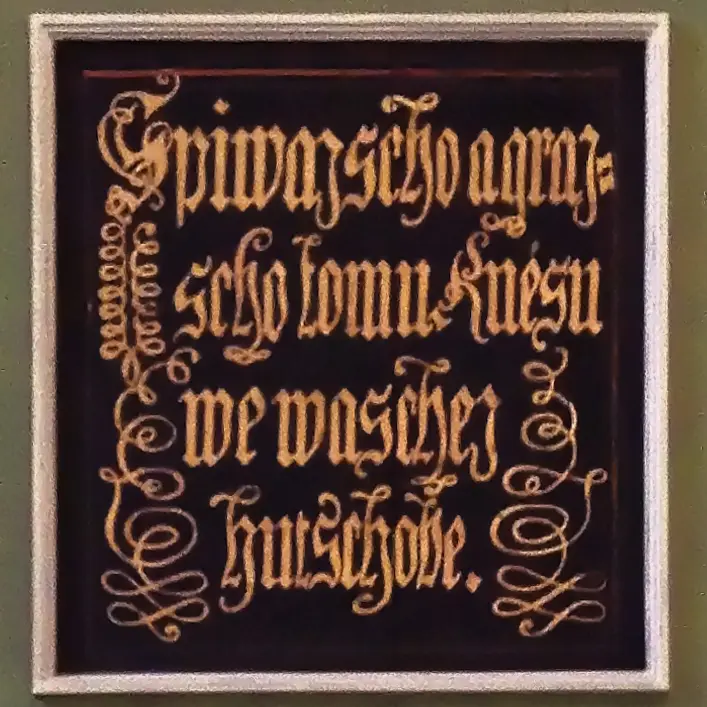 Spiwajscho a graj⸗
scho tomu Knésu
we waschej
hutschobe.